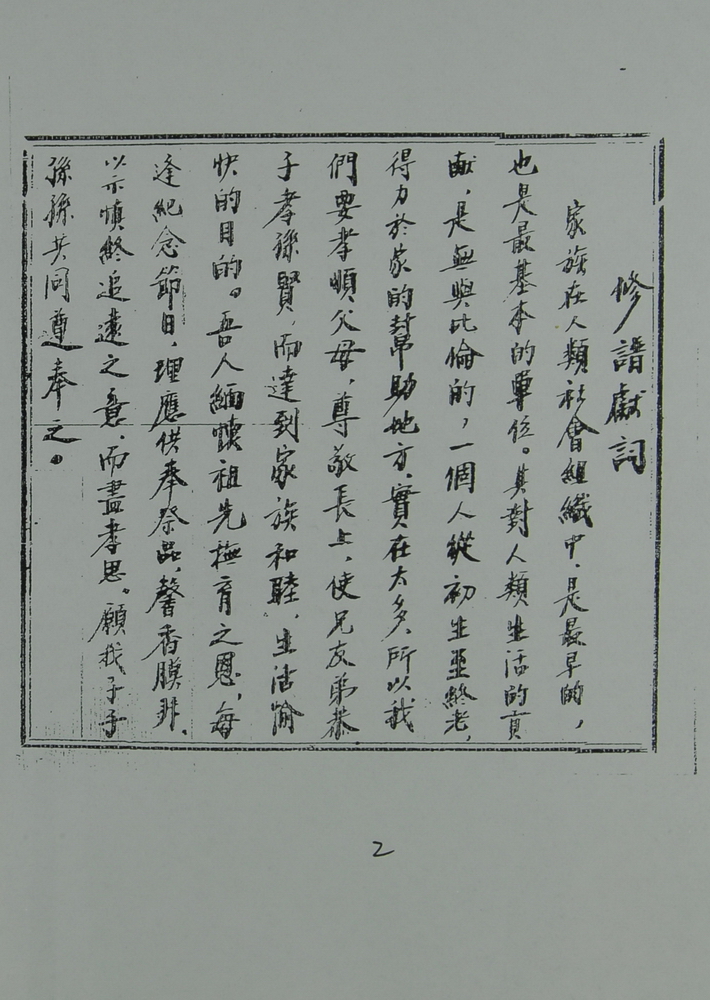 修譜獻詞
家族在人類社會組織中，是最早的，
也是最基本的單位。其對人類生活的貢
献，是無與比倫的，一個人從初生至終老，
得力於家的幫助地方，實在太多，所以我
們要孝順父母，尊敬長上，使兄友弟恭
子孝孫賢，而達到家族和睦，生活愉
快的目的。吾人緬懷祖先撫育之恩，每
逢紀念節日，理應供奉祭品，馨香膜拜，
以示慎終追遠之意，而盡孝思。願我子子
孫孫共同遵奉之。
2